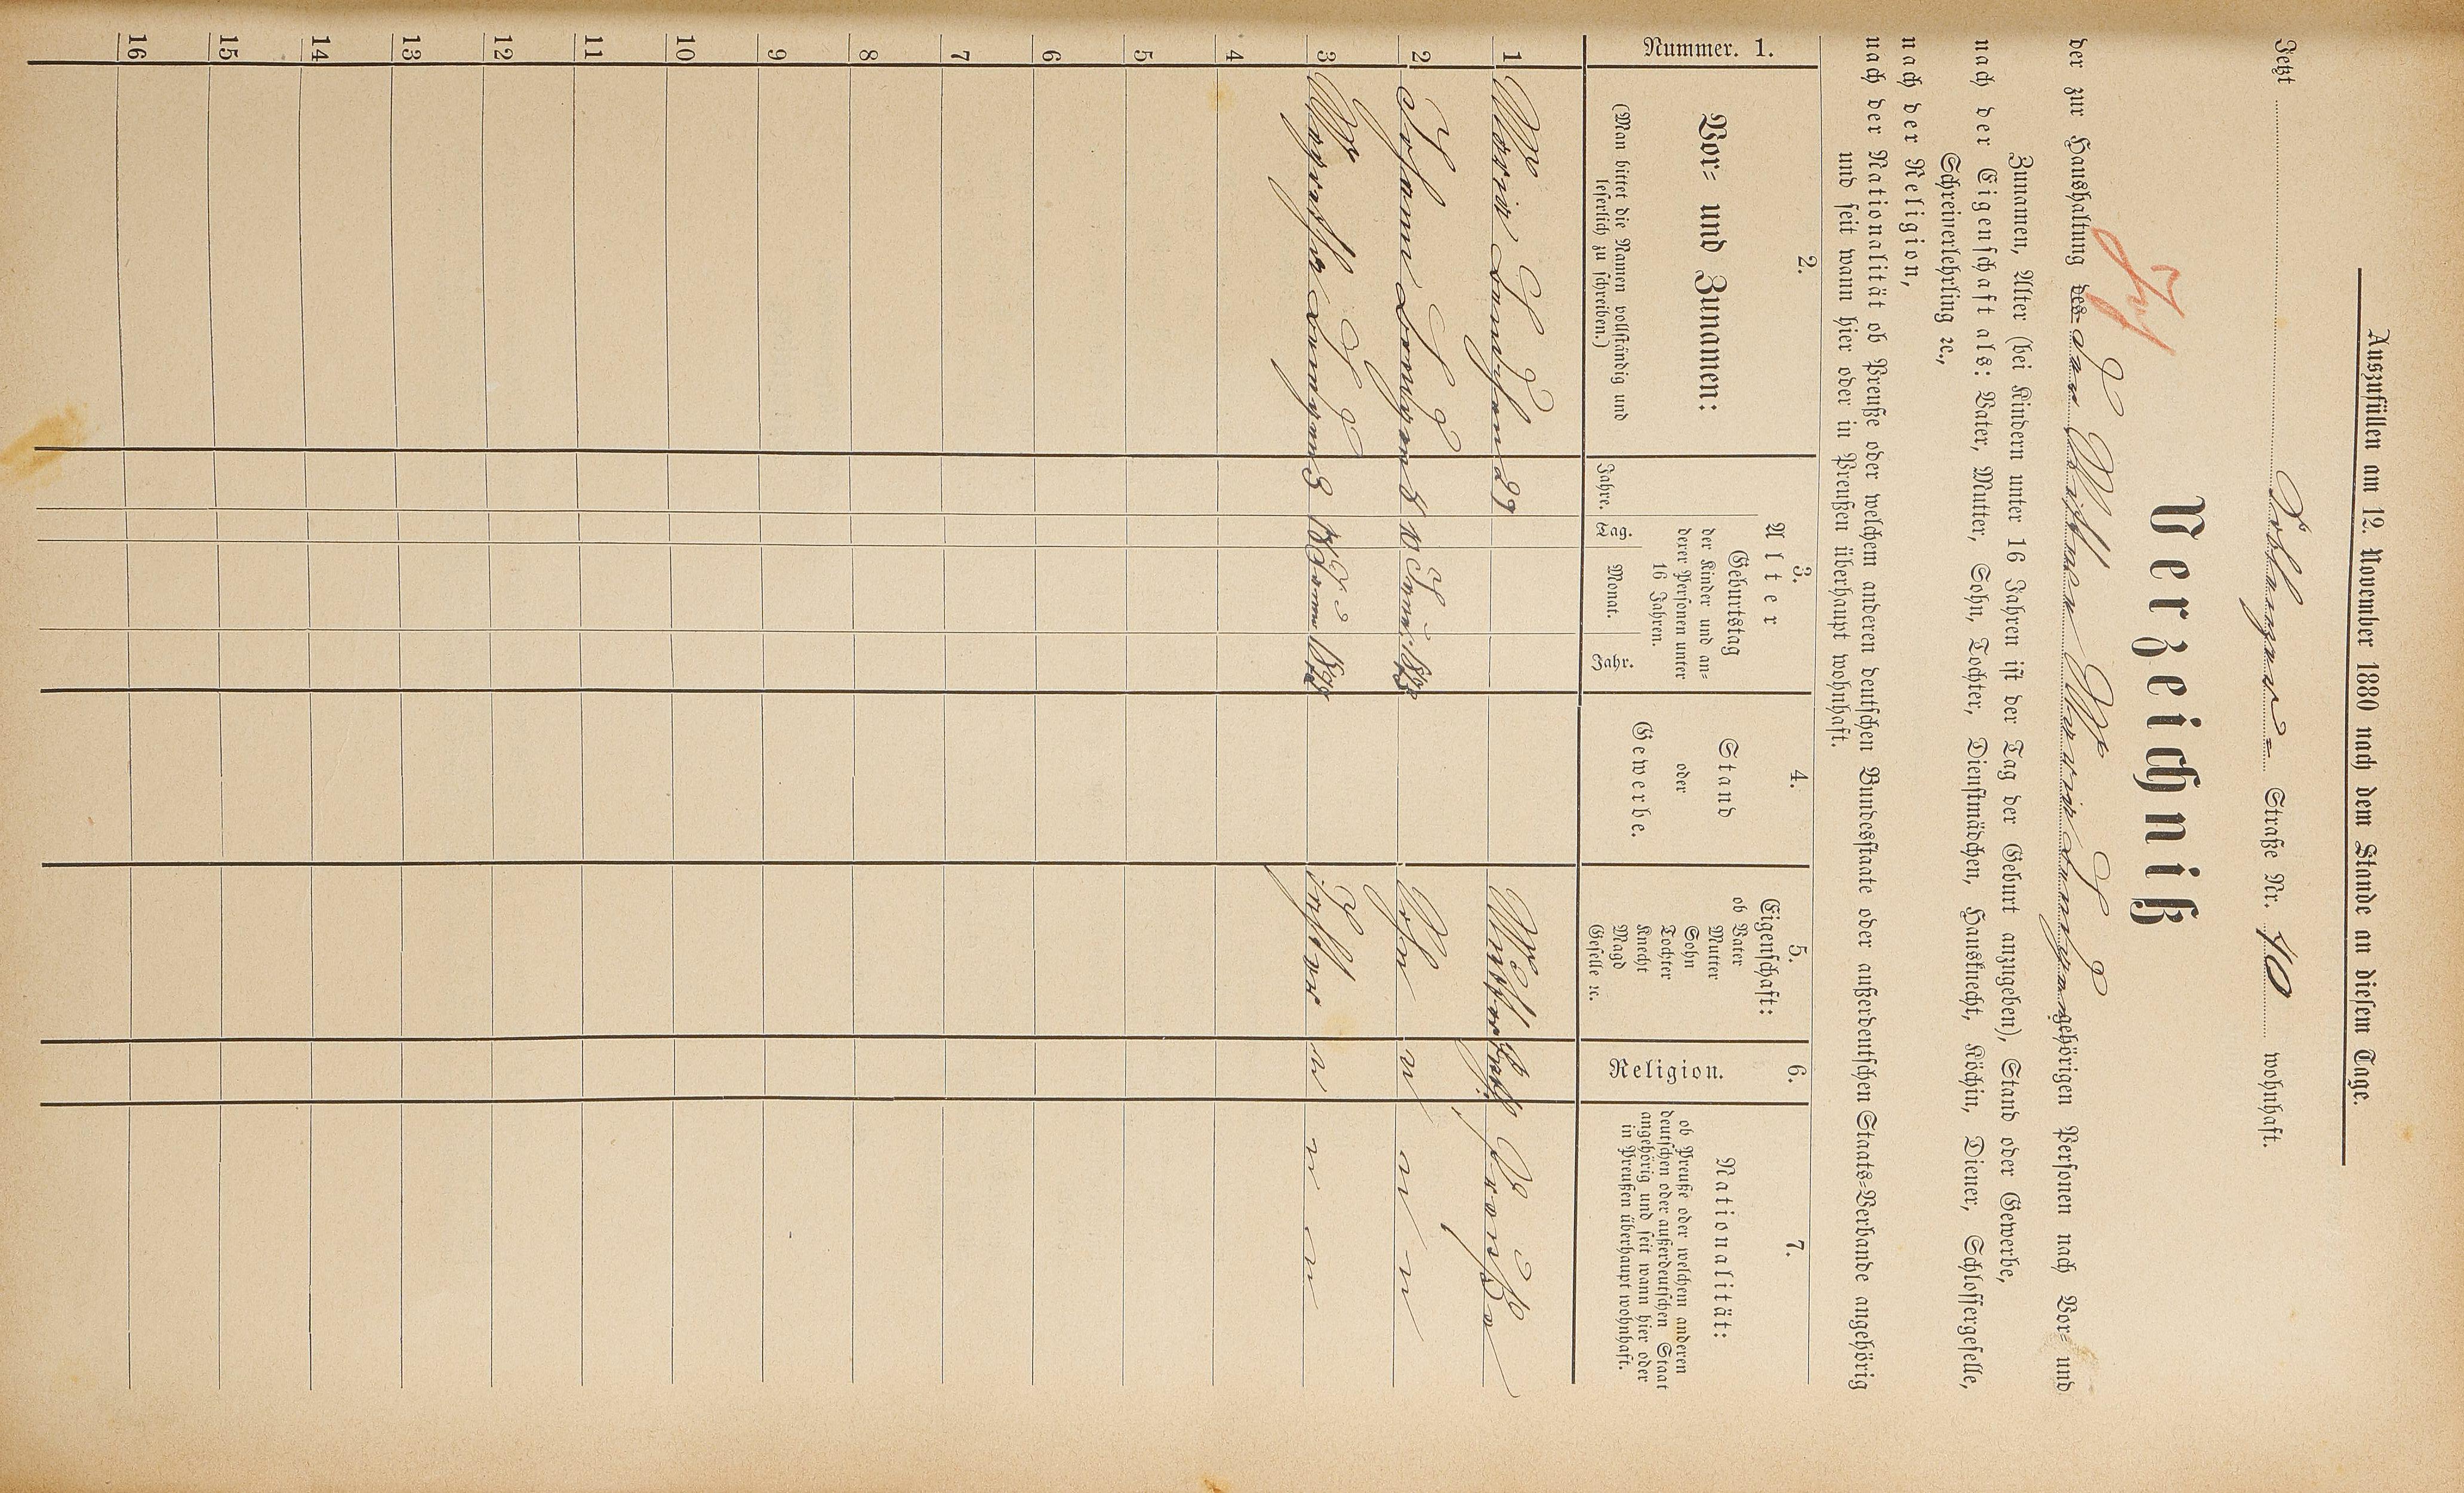 Auszufüllen am 12. November 1880 nach dem Stande an diesem Tage.
Jetzt Straße Nr. 40 wohnhaft.
Verzeichniß
der zur Haushaltung des der Wittwe Maria gehörigen Personen nach Vor- und
Zunamen, Alter (bei Kindern unter 16 Jahren ist der Tag der Geburt anzugeben), Stand oder Gewerbe,
nach der Eigenschaft als: Vater, Mutter, Sohn, Tochter, Dienstmädchen, Hausknecht, Köchin, Diener, Schlossergeselle,
Schreinerlehrling ꝛc.,
nach der Religion,
nach der Nationalität ob Preuße oder welchem anderen deutschen Bundesstaate oder außerdeutschen Staats-Verbande angehörig
und seit wann hier oder in Preußen überhaupt wohnhaft.
Nummer. 1.
2.
Vor- und Zunamen:
(Man bittet die Namen vollständig und
leserlich zu schreiben.)
3.
Alter
Jahre.
Geburtstag
der Kinder und an-
derer Personen unter
16 Jahren.
Tag.
Monat.
Jahr.
4.
Stand
oder
Gewerbe.
5.
Eigenschaft:
ob Vater
Mutter
Sohn
Tochter
Knecht
Magd
Geselle ꝛc.
6.
Religion.
7.
Nationalität:
ob Preuße oder welchem anderen
deutschen oder außerdeutschen Staat
angehörig und seit wann hier oder
in Preußen überhaupt wohnhaft.
1 Maria 29 Mutter kath. Preuße
2 Johann 5 10 Juni 1875 Sohn " " "
3 Margretha 3 18 Tochter " " "
4
5
6
7
8
9
10
11
12
13
14
15
16